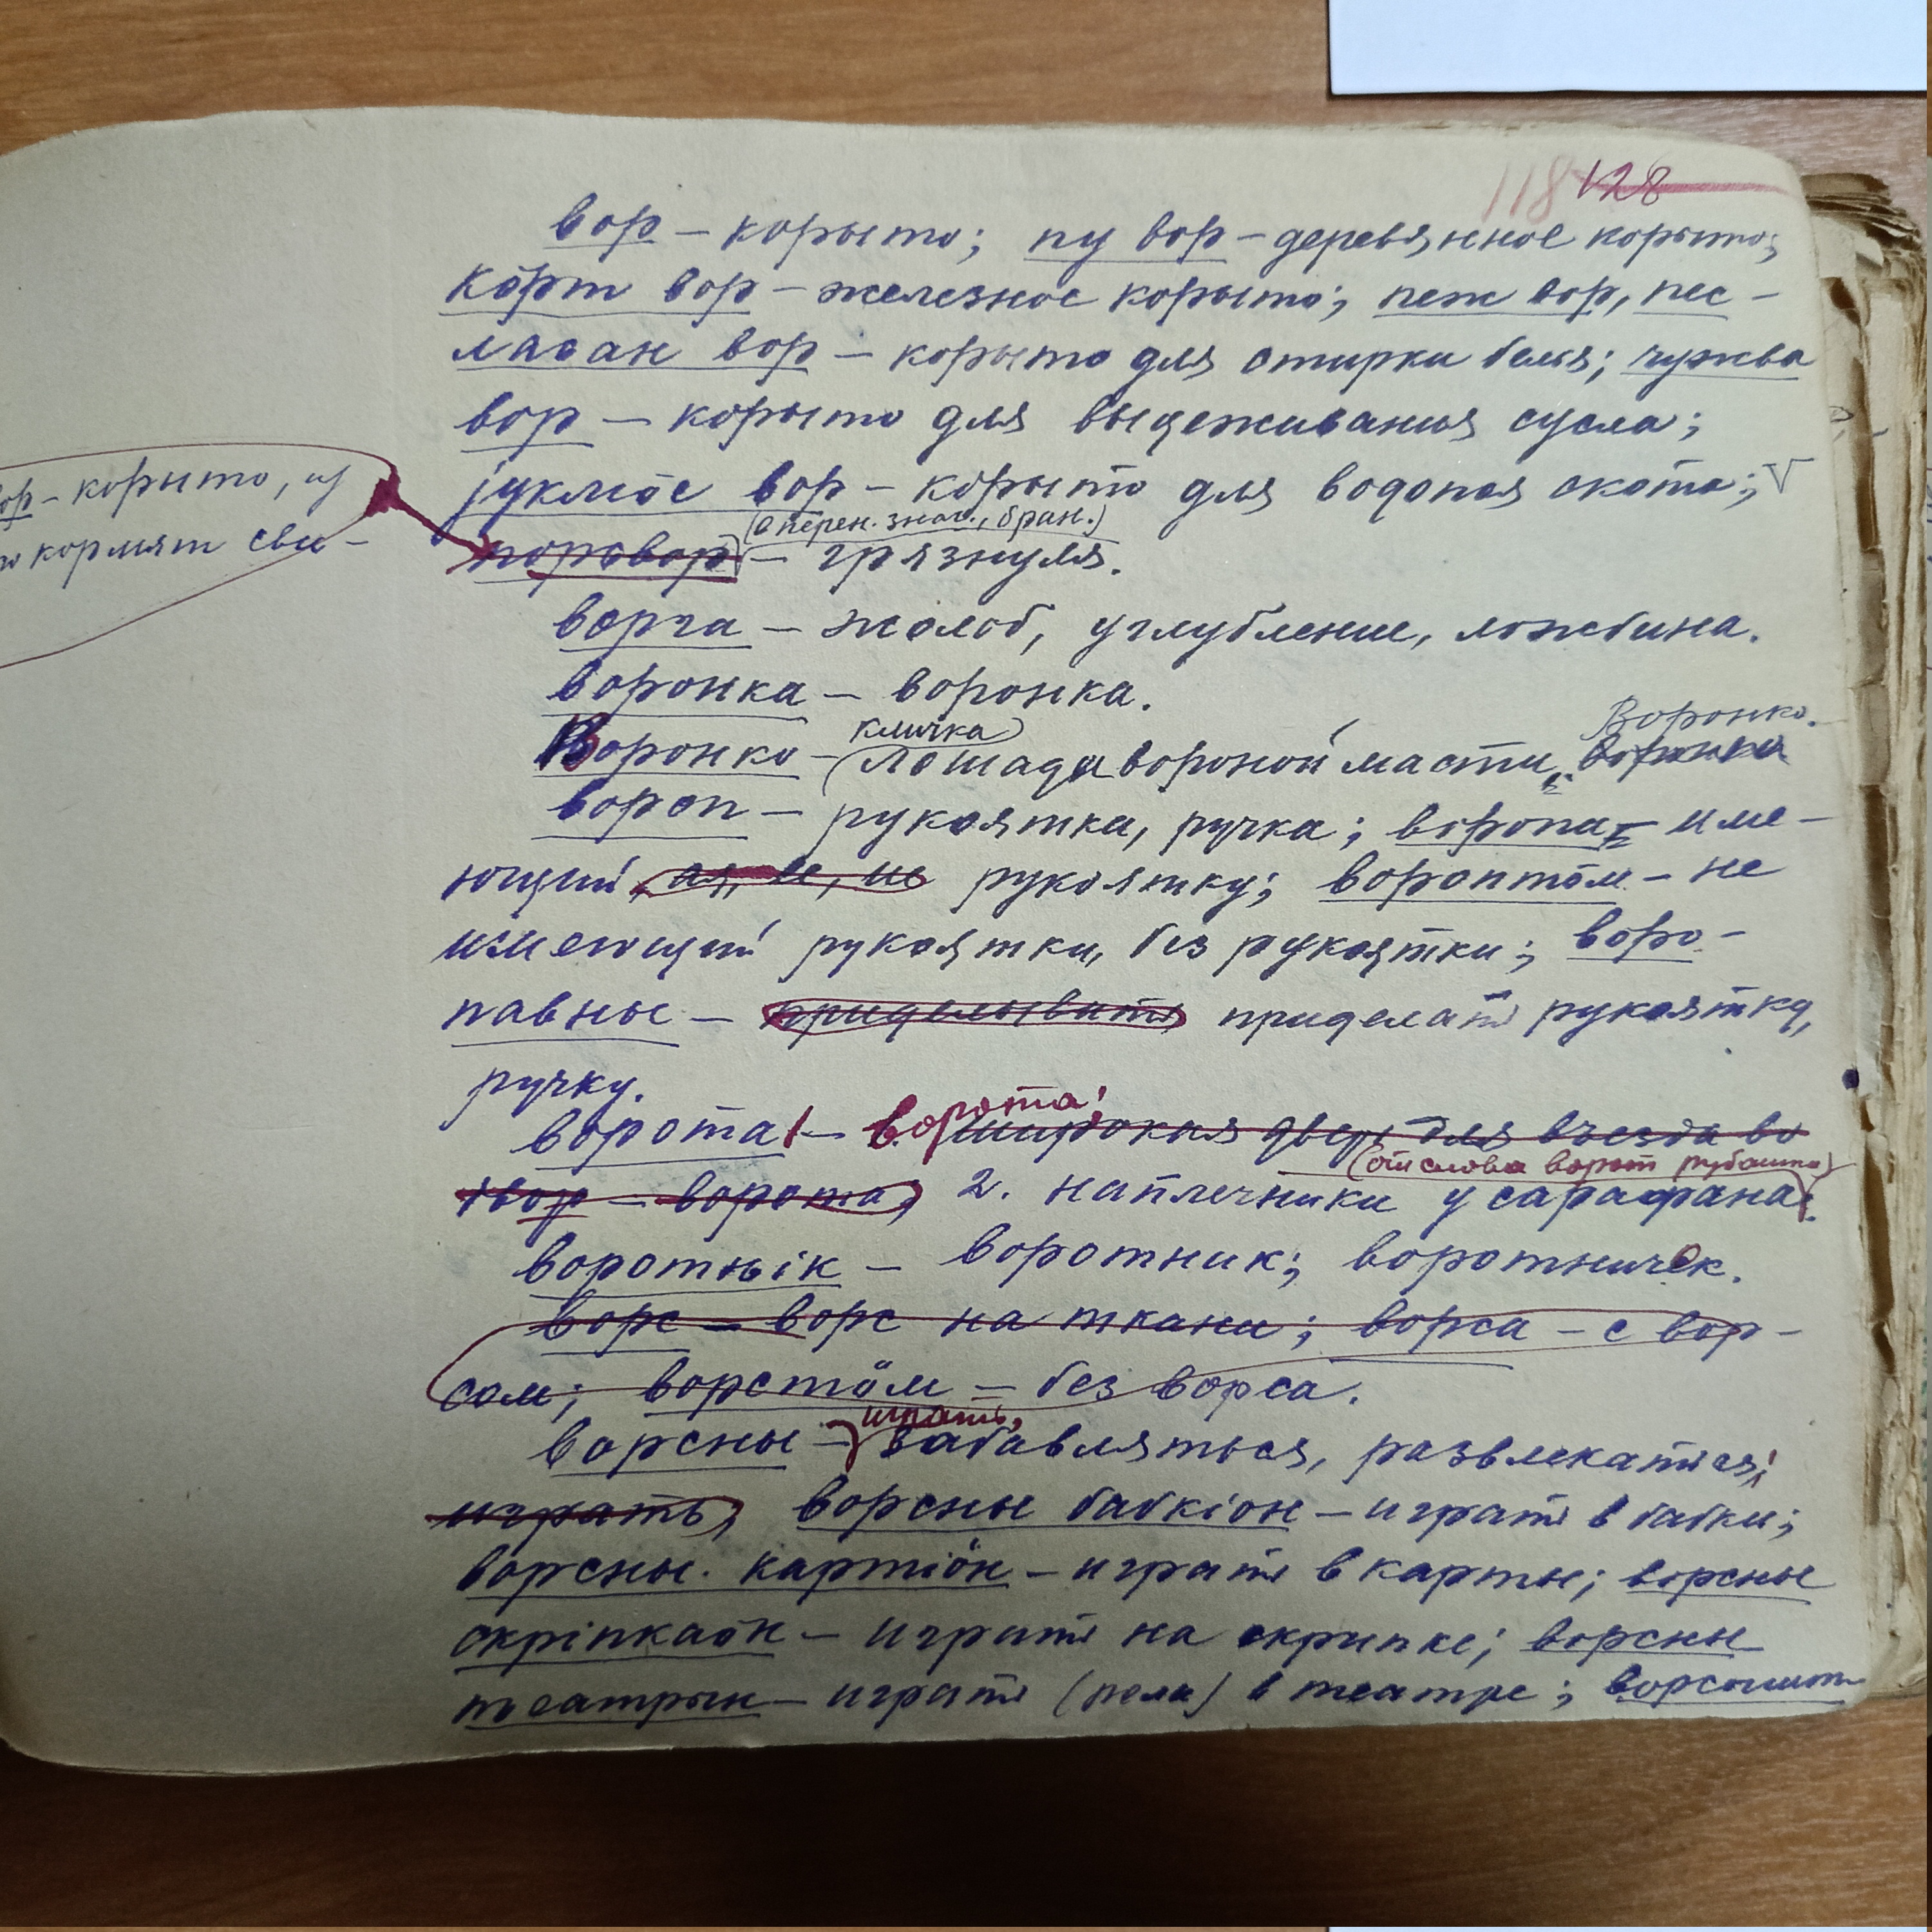 118 128
вор – корыто; пу вор – деревянное корыто;
кӧрт вор – железное корыто; пеж вор, пес-
ласан вор – корыто для стирки белья; чужва
вор – корыто для выцеживания сусла;
jукмӧс вор – корыто для водопоя скота; V
ор – корыто, из
кормят сви-
(в перен. знач., бран.)
порсвор – грязнуля.
ворга – жолоб, углубление, ложбина.
воронка – воронка.
Воронко.
кличка
Воронко – лошади вороной масти, воронки
вороп – рукоятка, ручка; воропа – име-
ющий, ая, ее, ие рукоятку; вороптӧм – не
имеющий рукоятки, без рукоятки; воро-
павны – приделывать приделать рукоятку,
ручку.
ворота;
ворота 1 – широкая дверь для въезда во
(от слова ворот рубашки)
двор – ворота; 2. наплечники у сарафана.
воротнік – воротник; воротничок.
ворс – ворс на ткани; ворса – с вор-
сом; ворстӧм – без ворса.
играть,
ворсны – забавляться, развлекаться;
играть; ворсны бабкіӧн – играть в бабки;
ворсны картіӧн – играть в карты; ворсны
скріпкаӧн – играть на скрипке; ворсны
театрын – играть (роль) в театре;